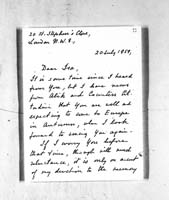 20 St. Stephen's Close,
London N.W.8,
20 July 1959,
Dear Isa,
It is some time since I heard
from you, but I have news
from Alik and
that you are well and
expecting to come to Europe
in Autumn, when I look
forward to seeing you again.
If I worry you before
that time, though with much
reluctance, it is only on account
of my devotion to the memory